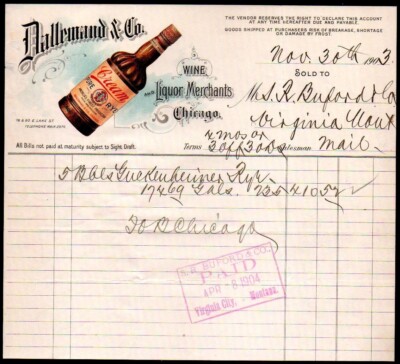 Dallemand & Co.
THE VENDOR RESERVES THE RIGHT TO DECLARE THIS ACCOUNT
AT ANY TIME HEREAFTER DUE AND PAYABLE.
GOODS SHIPPED AT PURCHASERS RISK OF BREAKAGE, SHORTAGE
OR DAMAGE BY FROST.
Nov. 30th 1903
SOLD TO
WINE
AND Liquor Merchants
Chicago.
Cream
PURE RYE
M S. R. Buford & Co
Virginia Mont
4 mos or
Terms 3 off 30 ds Salesman Mail
All Bills not paid at maturity subject to Sight Draft.
5 Bbls Guckenheimer Rye
174 69 Gals. 235 410 52 ✓
F O B Chicago
S. R. BUFORD & CO.
PAID
APR - 8 1904
Virginia City, Montana.